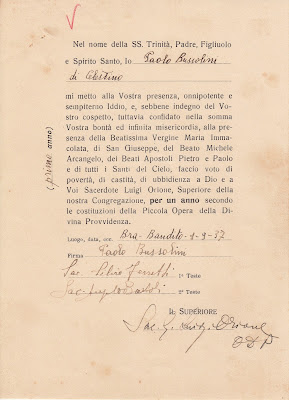 Nel nome della SS. Trinità, Padre, Figliuolo
e Spirito Santo, Io Paolo Bussolini
di Celestino
mi metto alla Vostra presenza, onnipotente e
sempiterno Iddio, e, sebbene indegno del Vo-
stro cospetto, tuttavia confidato nella somma
Vostra bontà ed infinita misericordia, alla pre-
senza della Beatissima Vergine Maria Imma-
colata, di San Giuseppe, del Beato Michele
Arcangelo, dei Beati Apostoli Pietro e Paolo
e di tutti i Santi del Cielo, faccio voto di po-
vertà, di castità, di ubbidienza a Dio e a
Voi Sacerdote Luigi Orione, Superiore della
nostra Congregazione, per un anno secondo
le costituzioni della Piccola Opera della Di-
vina Provvidenza.
(primo anno)
Luogo, data, ecc. Bra-Bandito-1-9-37
Firma Paolo Bussolini
Sac. Silvio Ferretti 1° Teste
Sac. 2° Teste
IL SUPERIORE
Sac. Orione